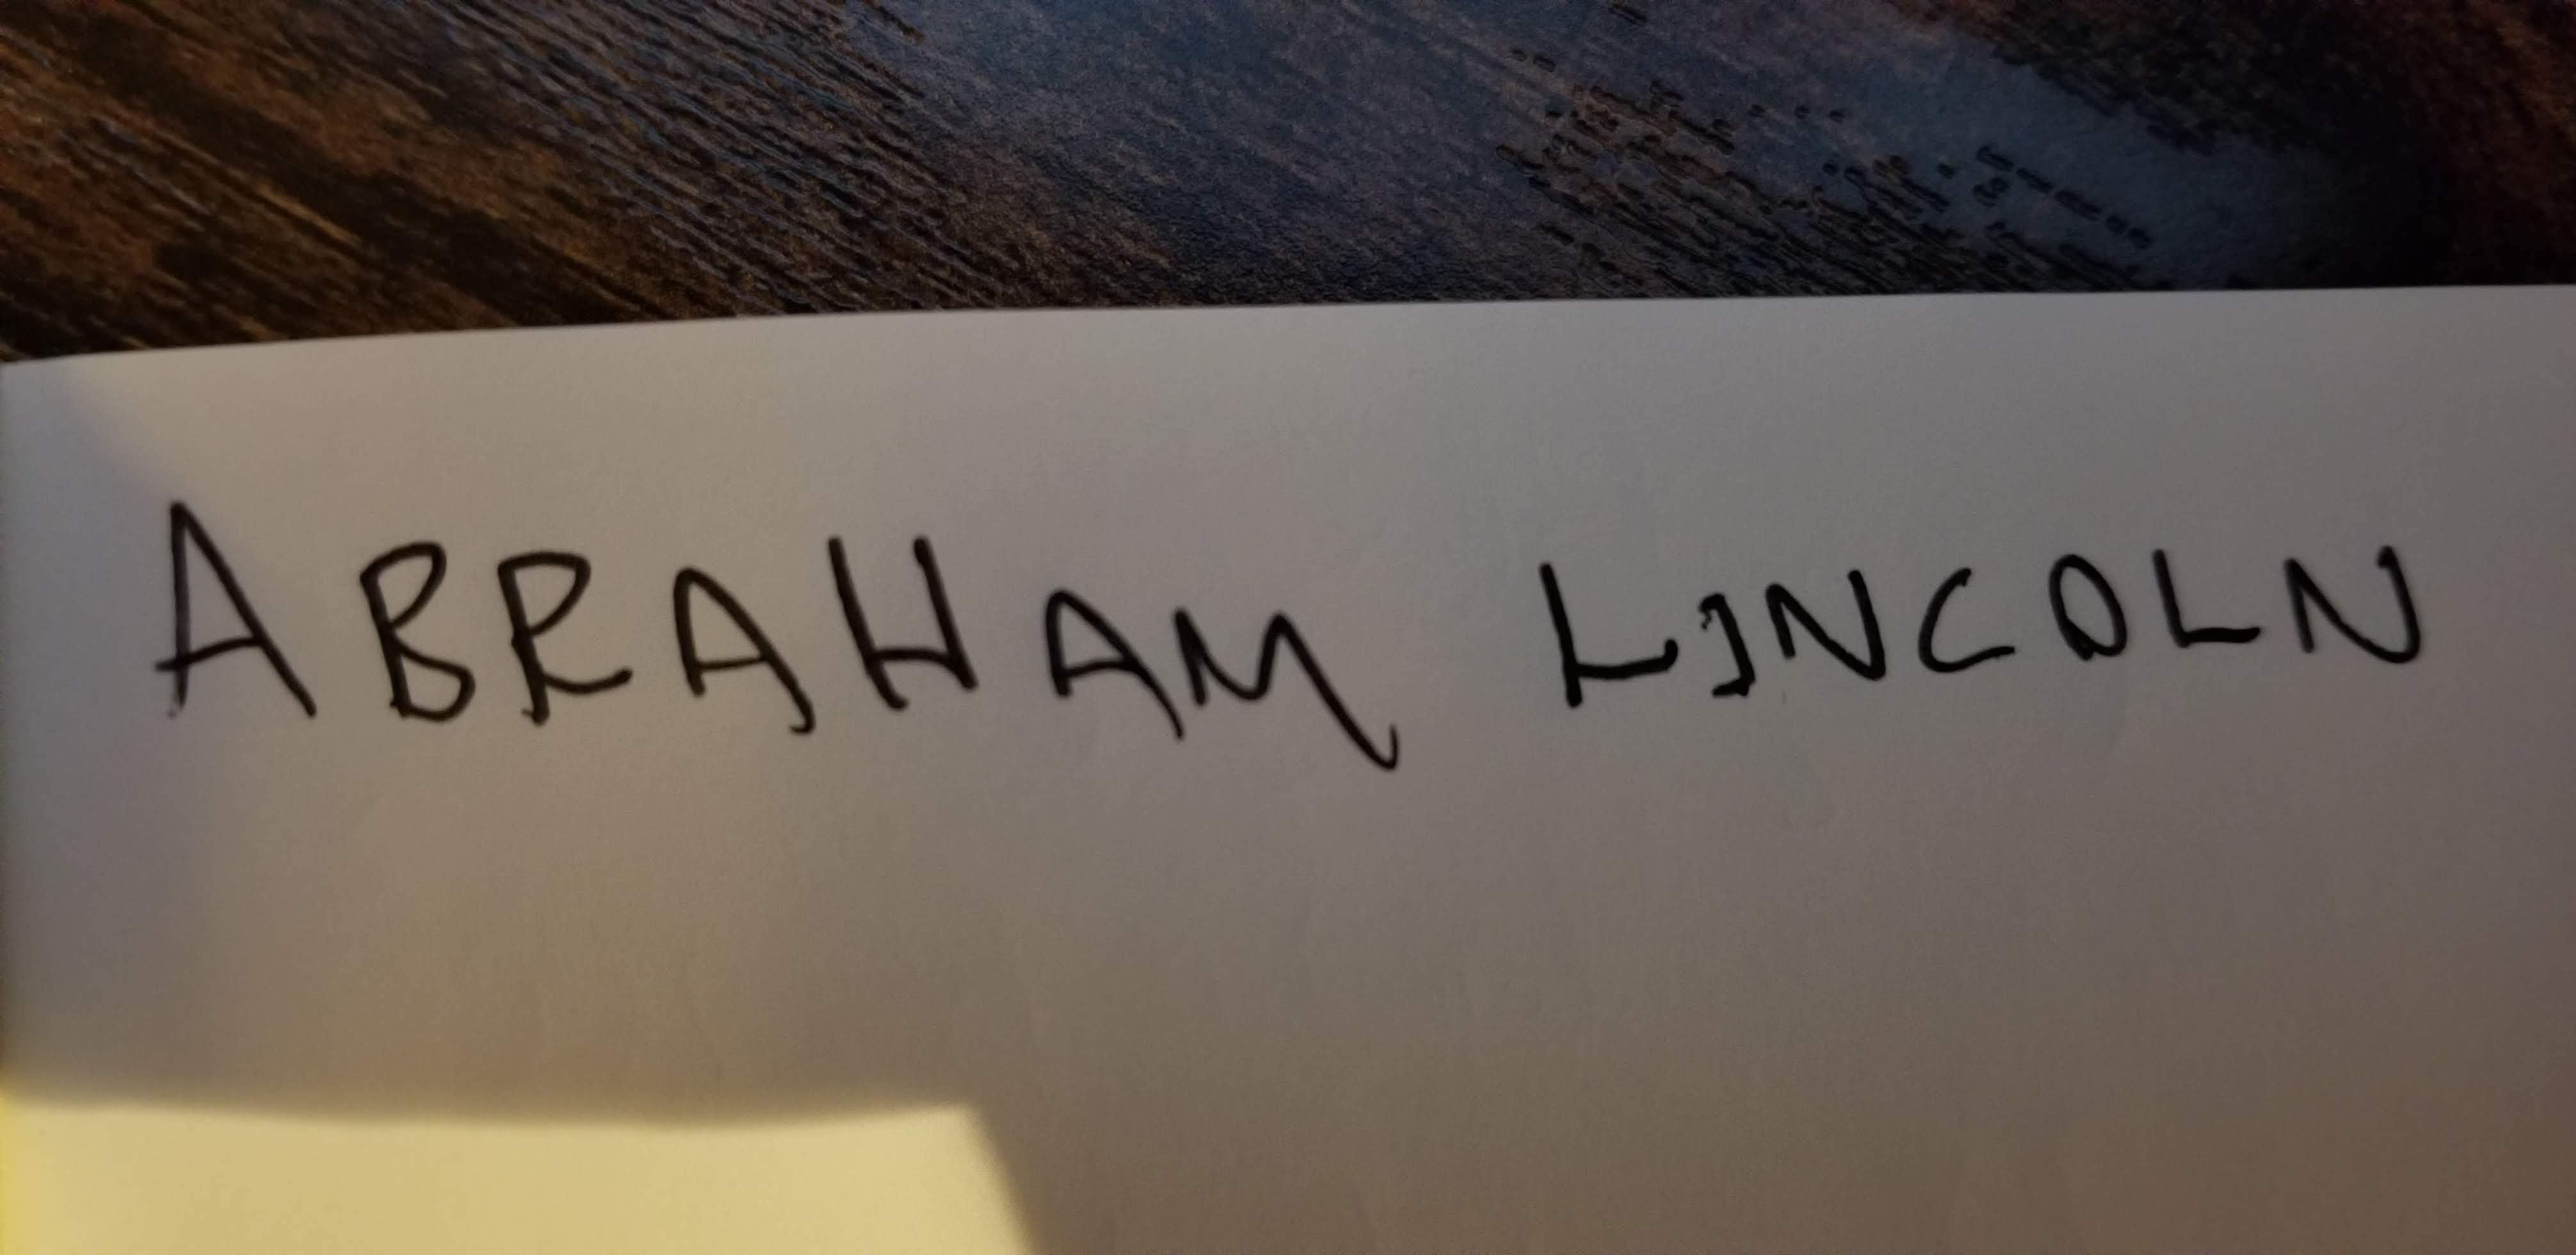 ABRAHAM LINCOLN